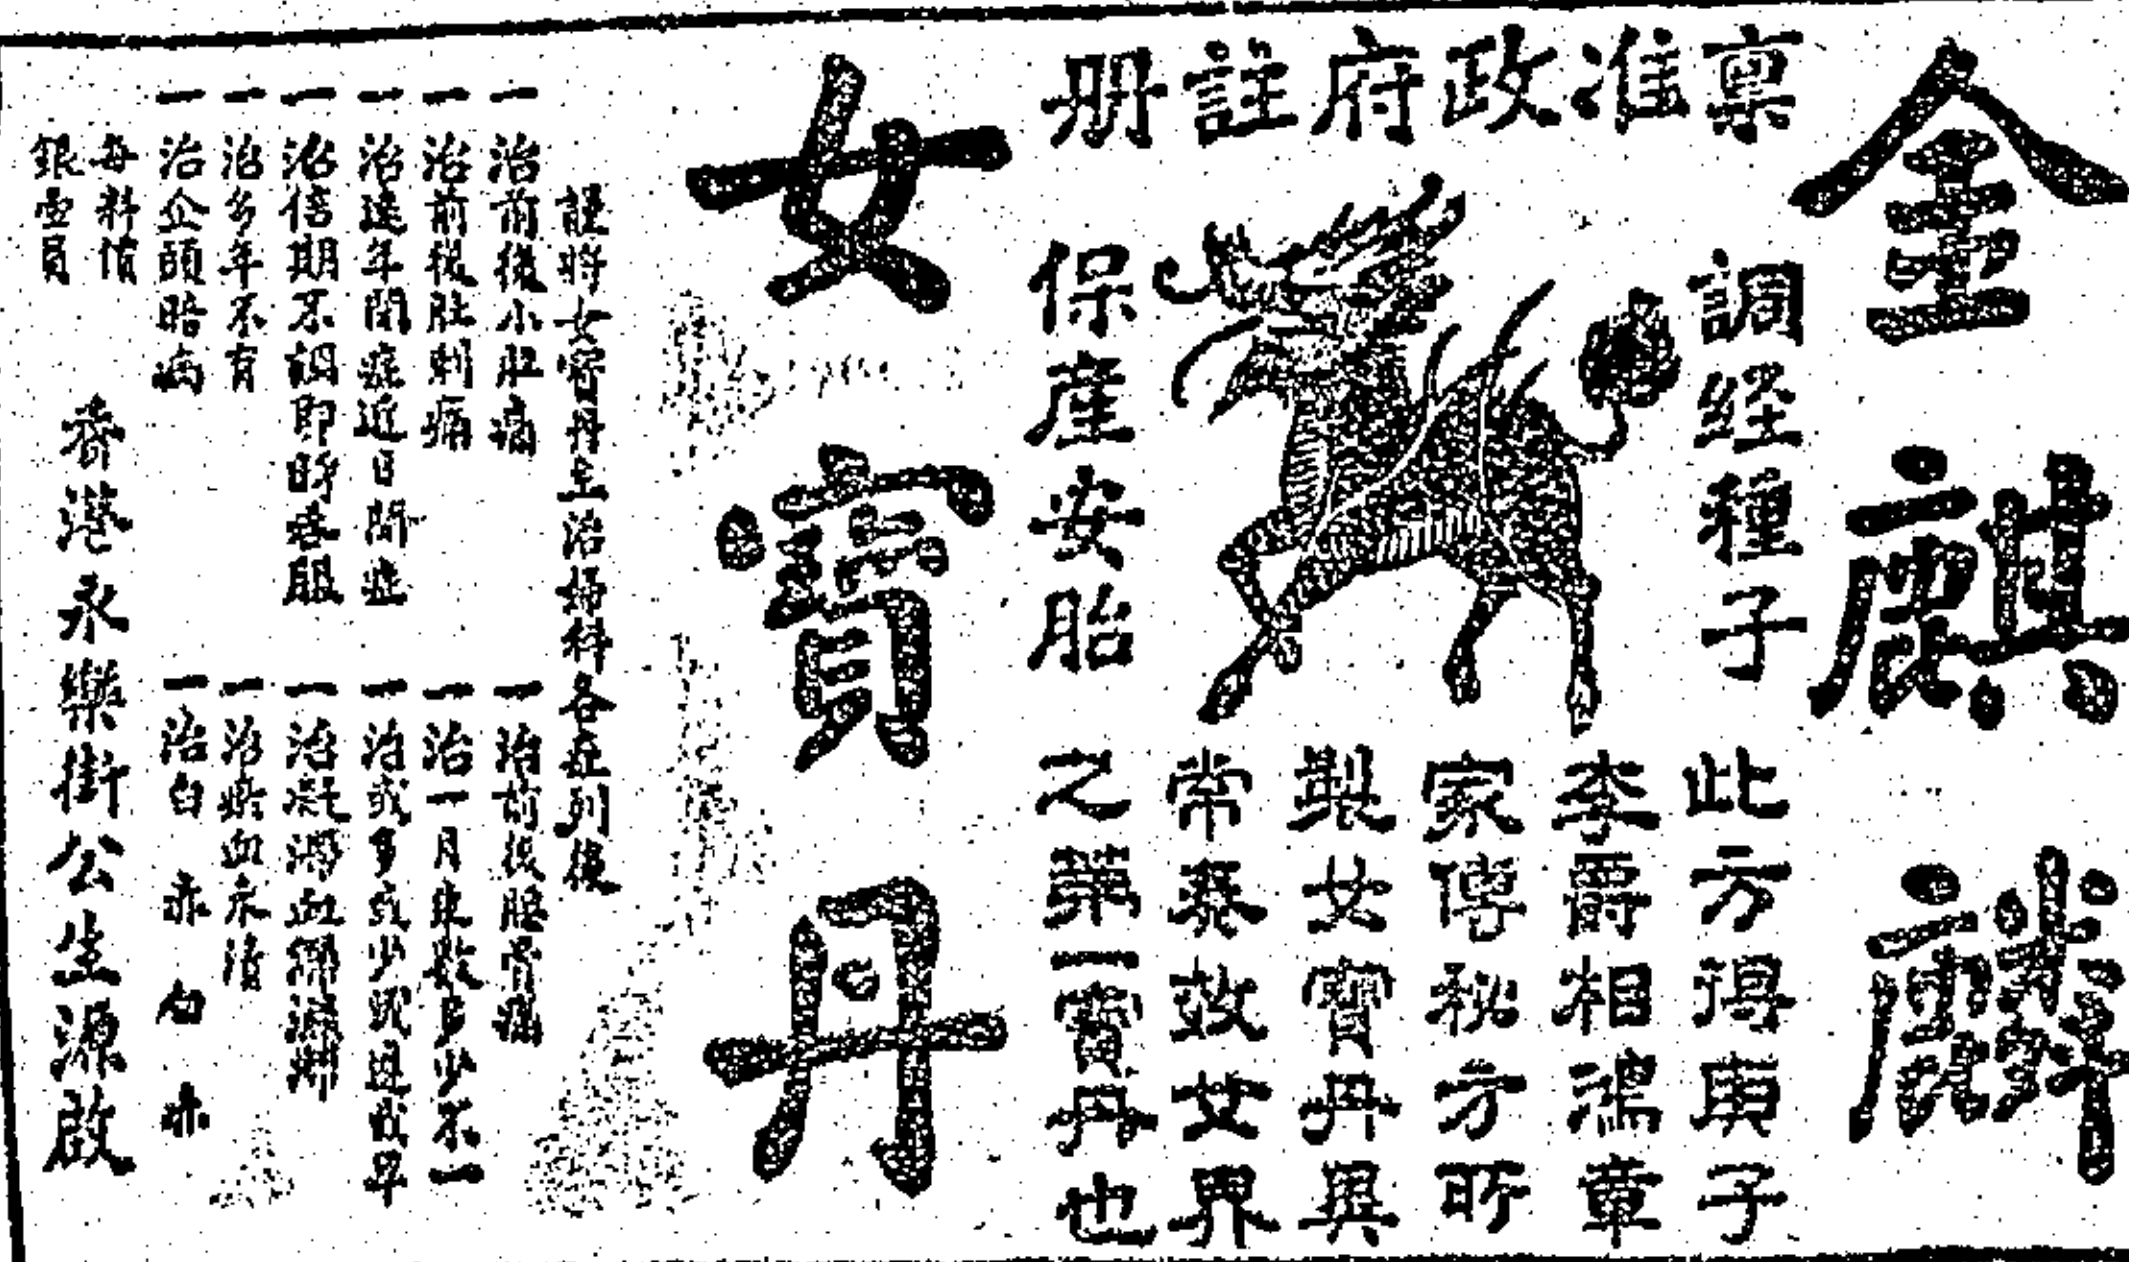 金麒麟
稟准政府註冊
調經種子
保產安胎
此方得庚子
李爵相鴻章
家傳秘方所
製女寶丹與
常奏效女界
之第一寶丹也
女寶丹
謹將女寶丹主治婦科各症列後
一治前後小肚痛
一治前後肚刺痛
一治遠年閉症近日閉症
一治信期不調即時愈服
一治多年不育
一治企頭暗病
一治前後腰骨痛
一治一月來數多少不一
一治或多或少或遲或早
一治凝滯血淋漓
一治瘀血未清
一治白 赤 白 赤
每料價
銀壹員
香港永樂街公生源啟